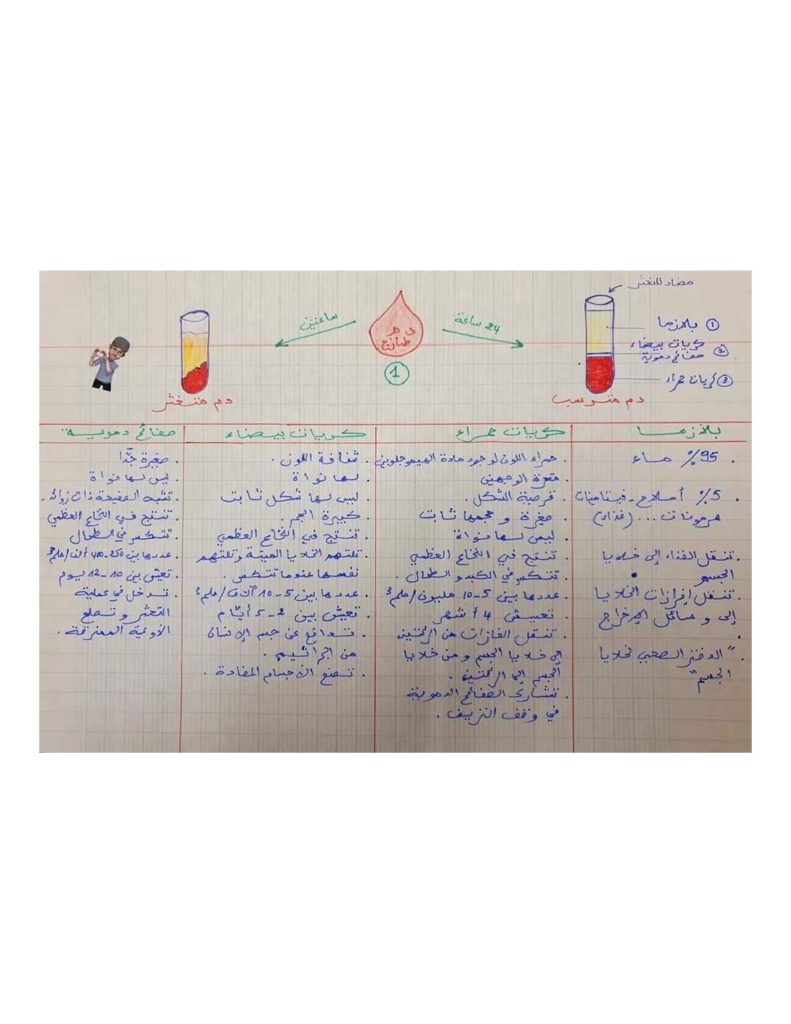 مضاد للتخثر
دم طازج
1
24 ساعة
ساعتين
① بلازما
② كريات بيضاء
صفائح دموية
③ كريات حمراء
دم مترسب
دم متخثر
بلازما
. 95% ماء
. 5% أملاح - فيتامينات
هرمونات ... (غذاء)
. تنقل الغذاء إلى خلايا
الجسم
. تنقل إفرازات الخلايا
إلى وسائل الإخراج
. "الدفتر الصحي لخلايا
الجسم"
كريات حمراء
. حمراء اللون لوجود مادة الهيموجلوبين
. مقعرة الوجهين
. قرصية الشكل
. صغيرة وحجمها ثابت
. ليس لها نواة
. تنتج في النخاع العظمي
. تتكسر في الكبد و الطحال
. عددها بين 5-10 مليون/ملم³
. تعيش 4 أشهر
. تنقل الغازات من الرئتين
إلى خلايا الجسم و من خلايا
الجسم إلى الرئتين.
. تشارك الصفائح الدموية
في وقف النزيف.
كريات بيضاء
. شفافة اللون.
. لها نواة
. ليس لها شكل ثابت
. كبيرة الحجم.
. تنتج في النخاع العظمي
. تلتهم الخلايا الميتة و تلتهم
نفسها عندما تتكسر.
. عددها بين 5-10 آلاف/ملم³
. تعيش بين 2-5 أيام
. تدافع عن جسم الإنسان
من الجراثيم.
. تصنع الأجسام المضادة.
صفائح دموية
. صغيرة جدًا
. ليس لها نواة
. تشبه الصفيحة ذات زوائد.
. تنتج في النخاع العظمي
. تتكسر في الطحال
. عددها بين 250-400 ألف/ملم³
. تعيش بين 10-12 يوم
. تدخل في عملية
التخثر و تصلح
الأوعية الممزقة.